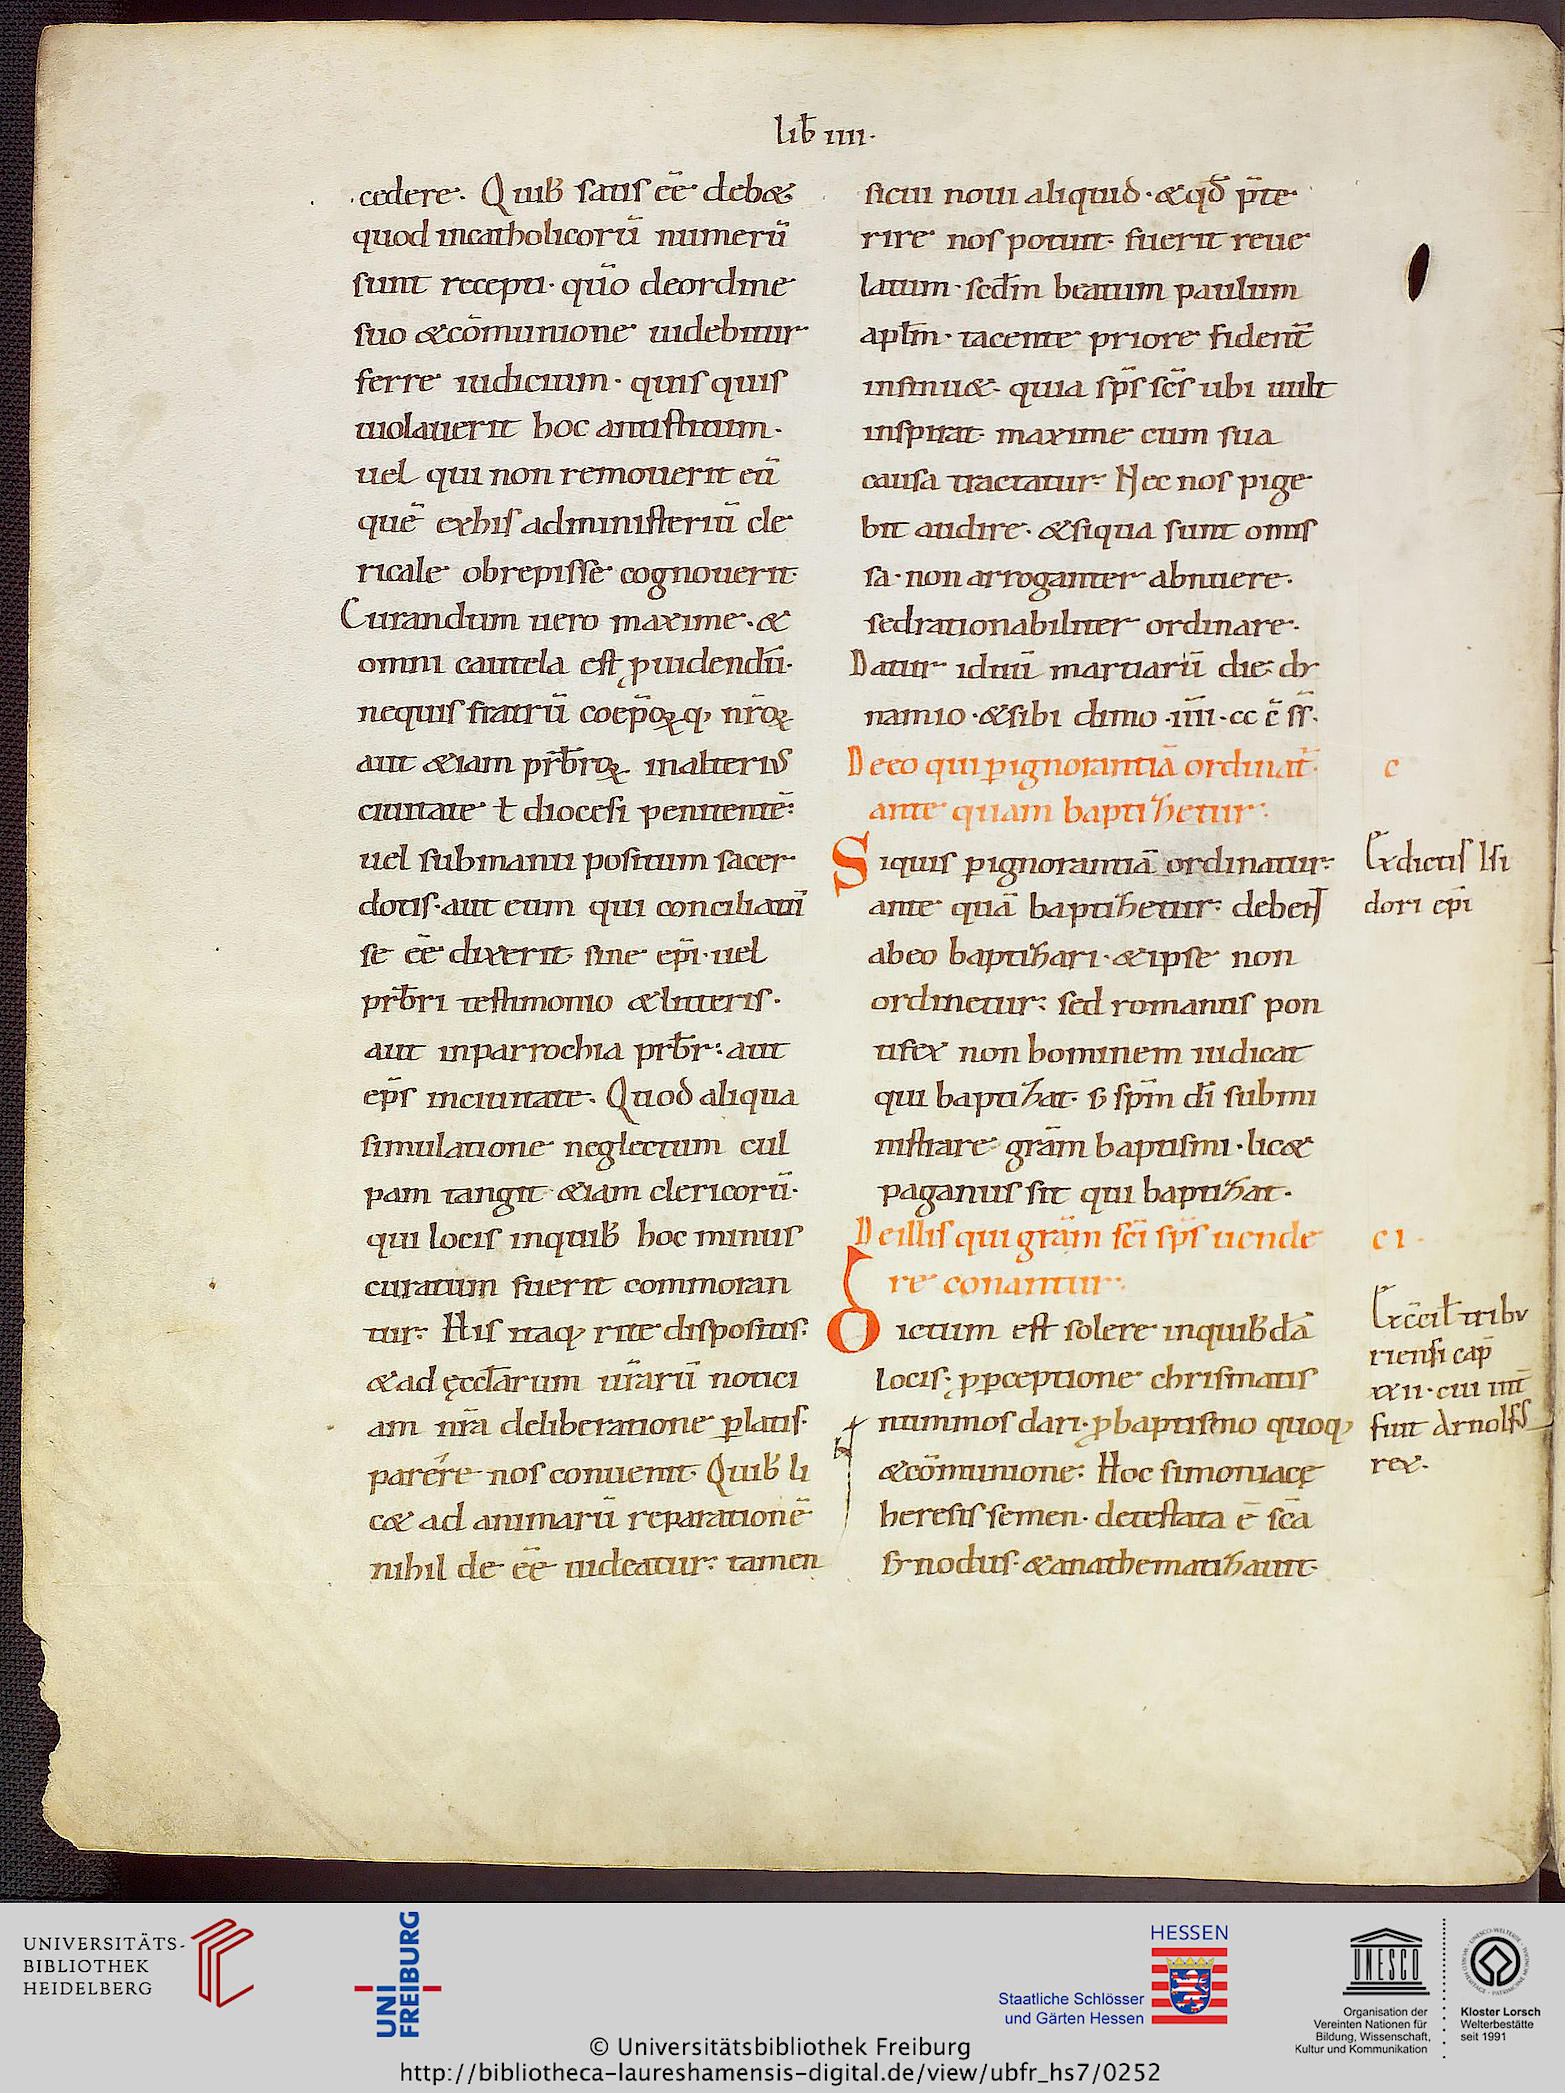 lib̄ iiii·
·cedere· Quib; satis ēē debet
quod incatholicorū numerū
sunt recepti· quō deordine
suo &cōmunione uidebitur
ferre iudicium· quis quis
uiolauerit hoc antistitum·
uel qui non remouerit eū
quē exhis administeriū cle
ricale obrepisse cognouerit·
Curandum uero maxime· &
omni cautela est ꝓuidendū·
nequis fratrū coep̄oꝝq; nr̄oꝝ
aut &iam prb̄roꝝ inalterius
ciuitate ł diocesi penitentē·
uel submanu positum sacer
dotis· aut eum qui conciliatū
se ēē dixerit· sine ep̄i· uel
prb̄ri testimonio &litteris·
aut inparrochia prb̄r· aut
ep̄s inciuitate· Quod aliqua
simulatione neglectum cul
pam tangit &iam clericorū·
qui locis inquib; hoc minus
curatum fuerit commoran
tur· His itaq; rite dispositis·
&ad ęccl̄arum ur̄arū notici
am nr̄a deliberatione ꝑlatis·
parére nos conuenit· Quib; li
cet ad animarū reparationē
nihil de ēē uideatur· tamen
sicui noui aliquid· &qd̄ p̄te
rire nos potuit· fuerit reue
latum· sed̄m beatum paulum
apl̄m· tacente priore fident̄
insinuet· quia sp̄s sc̄s ubi uult
inspirat· maxime cum sua
causa tractatur· Nec nos pige
bit audire· &siqua sunt omis
sa· non arroganter abnuere·
sedrationabiliter ordinare·
Datur iduū martiarū die· dr̄
namio· &sibi dimo ·iiii· cc ē ss̄·
Deeo qui ꝑignorantiā ordinat̄·
c
ante quam baptizetur·
Siquis ꝑignorantiā ordinatur·
ante quā baptizetur· debent
abeo baptizari· &ipse non
ordinetur· sed romanus pon
tifex non hominem iudicat
qui baptizat· s; sp̄m dī submi
nistrare gr̄am baptismi· licet
paganus sit qui baptizat·
Exdictis Isi
dori ep̄i
Deillis qui gr̄am sc̄i sp̄s uende
ci·
re conantur·
Dictum est solere inquib;dā
locis· ꝓꝑceptione chrismatis
nummos dari· ꝓbaptismo quoq;
&cōmunione· Hoc simoniacę
heresis semen· detestata ē sc̄a
synodus· &anathematizauit·
Exc̄cil̄ tribu
riensi cap̄
xxii· cui int̄
fuit Arnolf's
rex·
UNIVERSITÄTS-
BIBLIOTHEK
HEIDELBERG
UNI
FREIBURG
HESSEN
Staatliche Schlösser
und Gärten Hessen
UNESCO
Organisation der
Vereinten Nationen für
Bildung, Wissenschaft,
Kultur und Kommunikation
Kloster Lorsch
Welterbestätte
seit 1991
© Universitätsbibliothek Freiburg
http://bibliotheca-laureshamensis-digital.de/view/ubfr_hs7/0252